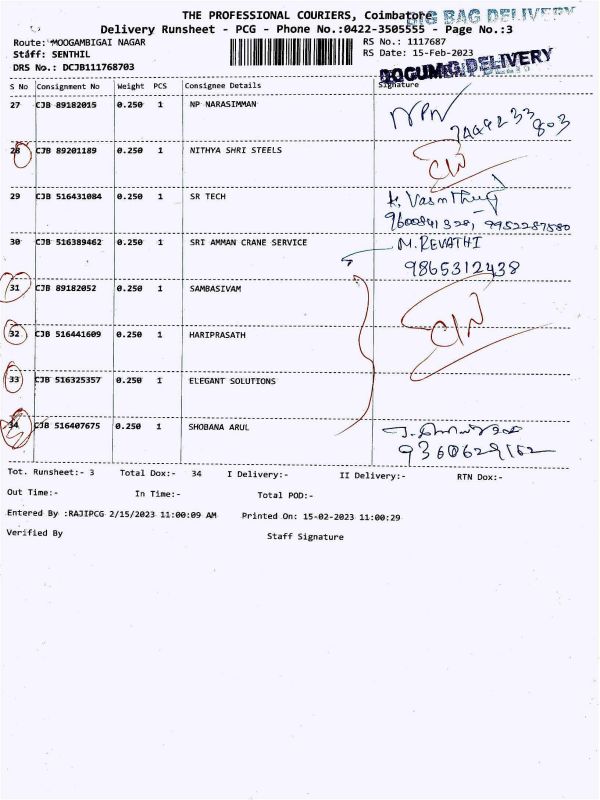 THE PROFESSIONAL COURIERS, Coimbatore
BIG BAG DELIVERY
Delivery Runsheet - PCG - Phone No.:0422-3505555 - Page No.:3
Route: MOOGAMBIGAI NAGAR
RS No.: 1117687
Staff: SENTHIL
RS Date: 15-Feb-2023
DRS No.: DCJB111768703
DELIVERY
S No Consignment No Weight PCS Consignee Details Signature
27 CJB 89182015 0.250 1 NP NARASIMMAN NPN
28 CJB 89201189 0.250 1 NITHYA SHRI STEELS
29 CJB 516431084 0.250 1 SR TECH
9600841328, 9952287580
30 CJB 516389462 0.250 1 SRI AMMAN CRANE SERVICE M. REVATHI
9865312438
31 CJB 89182052 0.250 1 SAMBASIVAM
32 CJB 516441609 0.250 1 HARIPRASATH
33 CJB 516325357 0.250 1 ELEGANT SOLUTIONS
34 CJB 516407675 0.250 1 SHOBANA ARUL
9360629162
Tot. Runsheet:- 3 Total Dox:- 34 I Delivery:- II Delivery:- RTN Dox:-
Out Time:- In Time:- Total POD:-
Entered By :RAJIPCG 2/15/2023 11:00:09 AM Printed On: 15-02-2023 11:00:29
Verified By Staff Signature